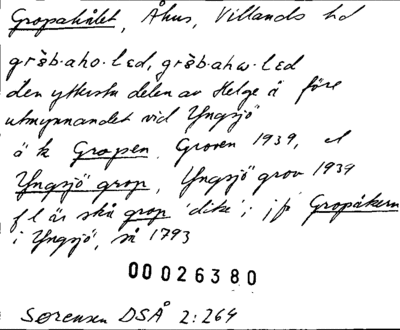 Gropahålet, Åhus, Villands hd
grŏ̀b·aho·lɛd, grŏ̀b·ahω·lɛd
den yttersta delen av Helge å före
utmynnandet vid Yngsjö
ä k Gropen. Groven 1939, el
Yngsjö grop, Yngsjö grov 1939
f l är skå grop 'dike'; jfr Gropåkern
i Yngsjö, så 1793
00026380
Sørensen DSÅ 2:264